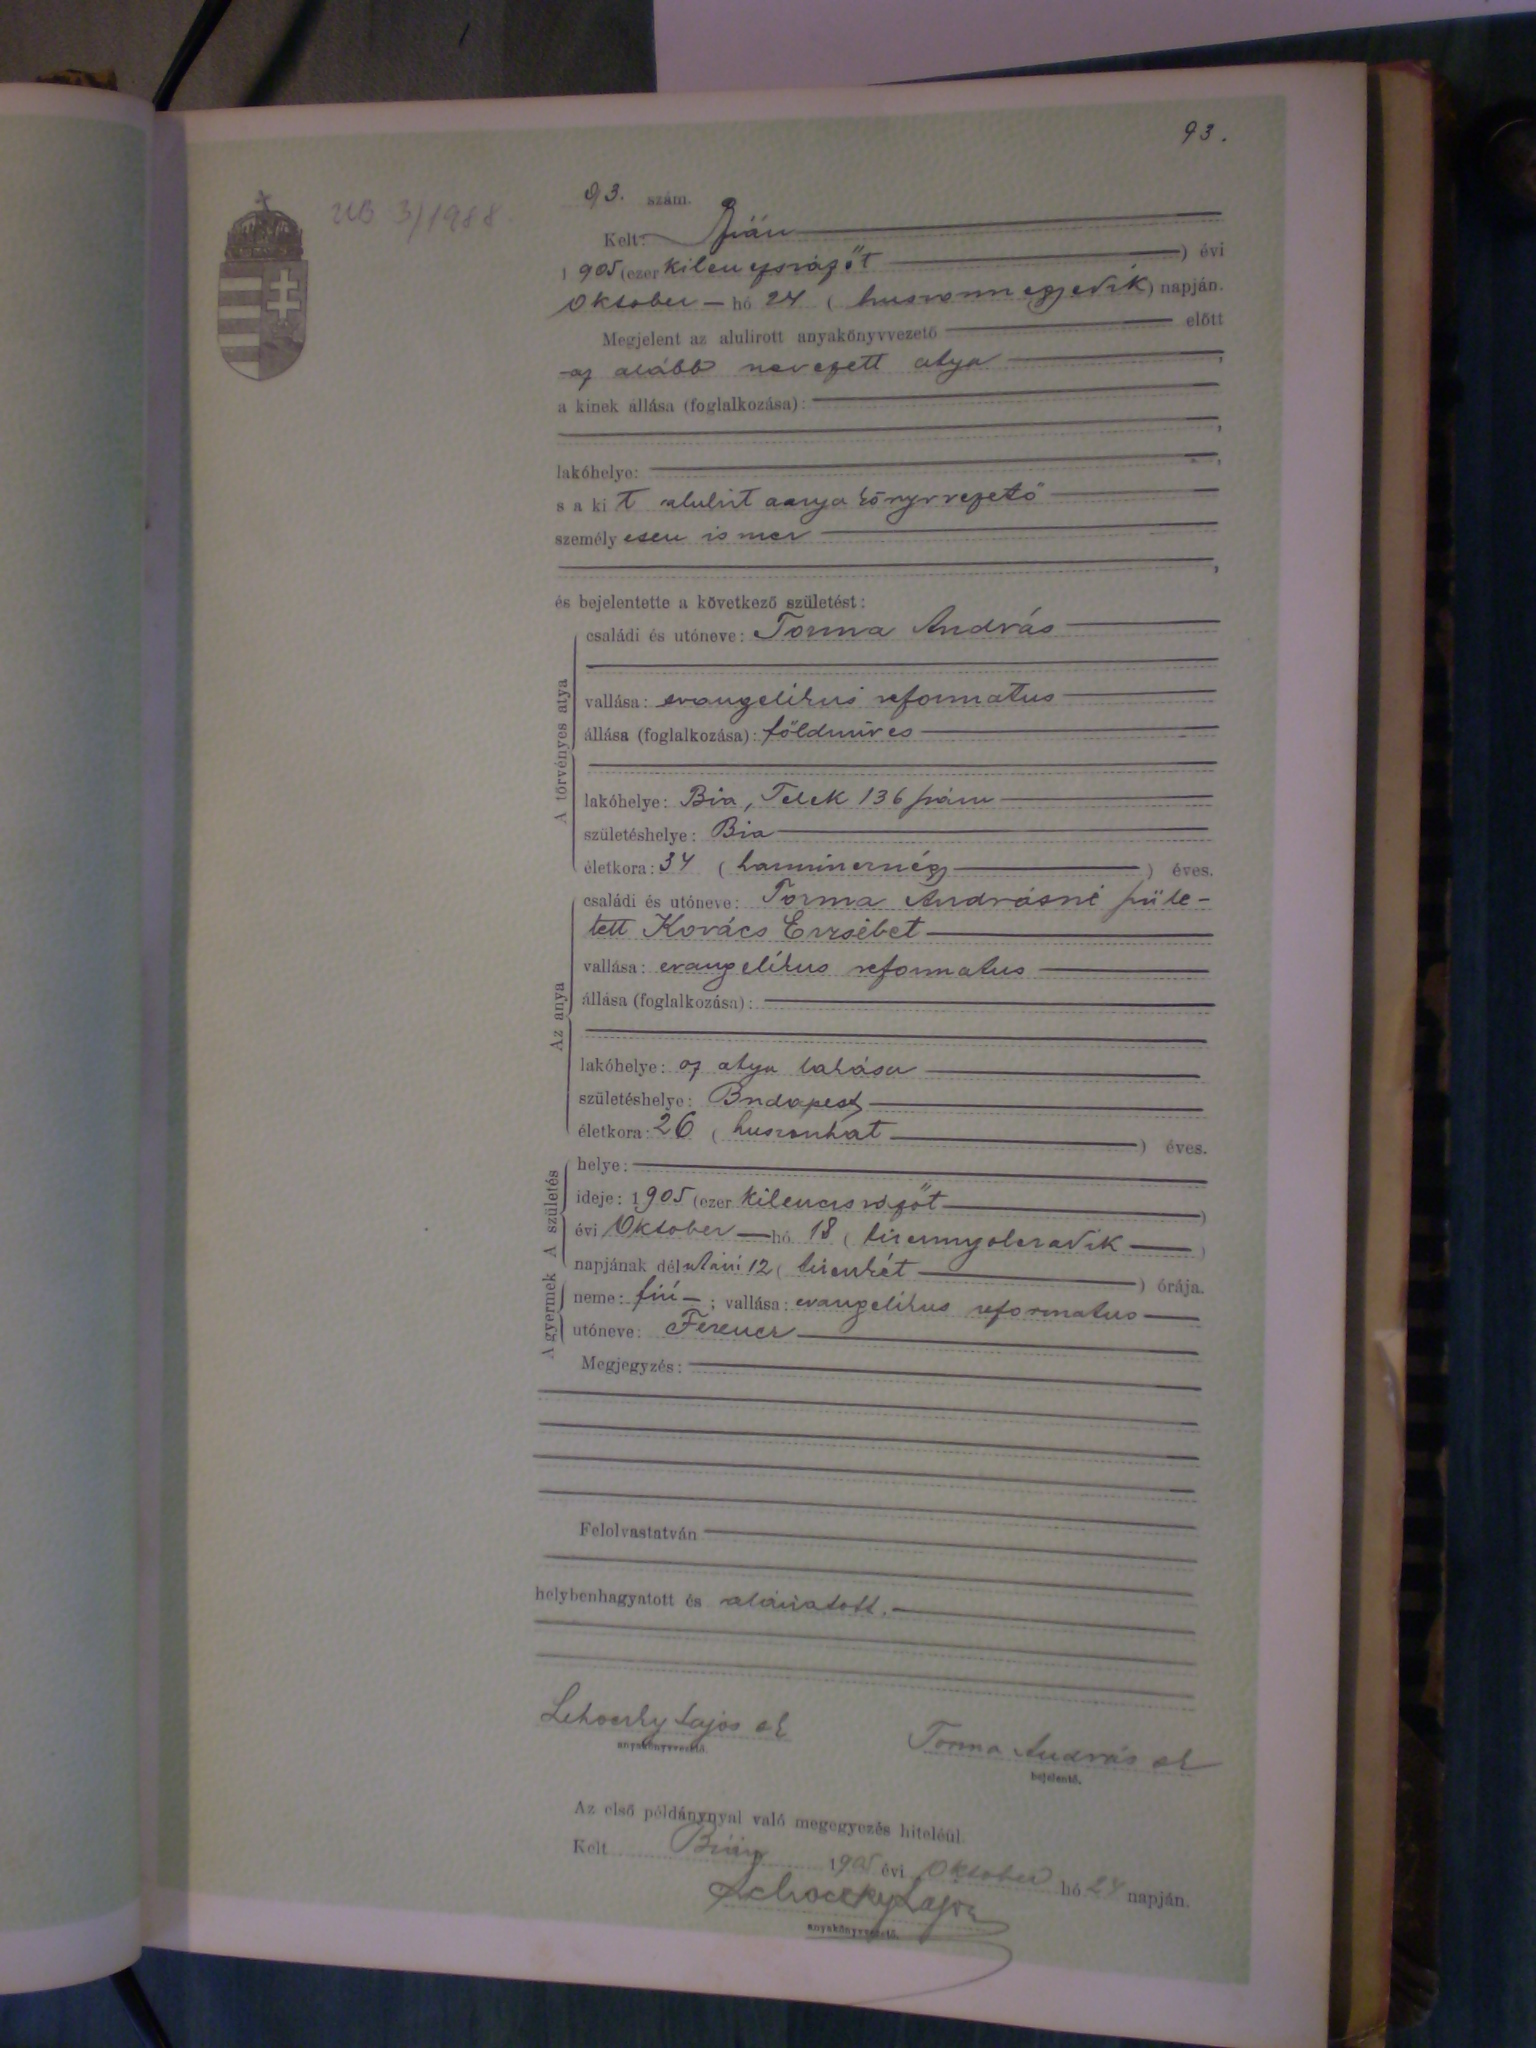 93.
93. szám.
UB 3/1988.
Kelt: Bián
1905 (ezer kilenczszázöt) évi
Oktober hó 24 (huszonnegyedik) napján.
Megjelent az alulirott anyakönyvvezető előtt
az alább nevezett atya,
a kinek állása (foglalkozása):
,
lakóhelye: ,
s a kit alulirt anyakönyvvezető
személyesen ismer
,
és bejelentette a következő születést:
A törvényes atya
családi és utóneve: Torma András
vallása: evangelikus reformatus
állása (foglalkozása): földmives
lakóhelye: Bia, Telek 136 szám
születéshelye: Bia
életkora: 34 (harmincznégy) éves.
Az anya
családi és utóneve: Torma Andrásné szüle-
tett Kovács Erzsébet
vallása: evangelikus reformatus
állása (foglalkozása):
lakóhelye: az atya lakása
születéshelye: Budapest
életkora: 26 (huszonhat) éves.
A születés
helye:
ideje: 1905 (ezer kilenczszázöt)
évi Oktober hó 18 (tizennyolczadik)
napjának délutáni 12 (tizenkét) órája.
A gyermek
neme: fiú; vallása: evangelikus reformatus
utóneve: Ferencz
Megjegyzés:
Felolvastatván
helybenhagyatott és aláiratott.
Lehoczky Lajos sk
anyakönyvvezető.
Torma András sk
bejelentő.
Az első példánynyal való megegyezés hiteléül.
Kelt Bián 1905 évi Oktober hó 24 napján.
Lehoczky Lajos
anyakönyvvezető.